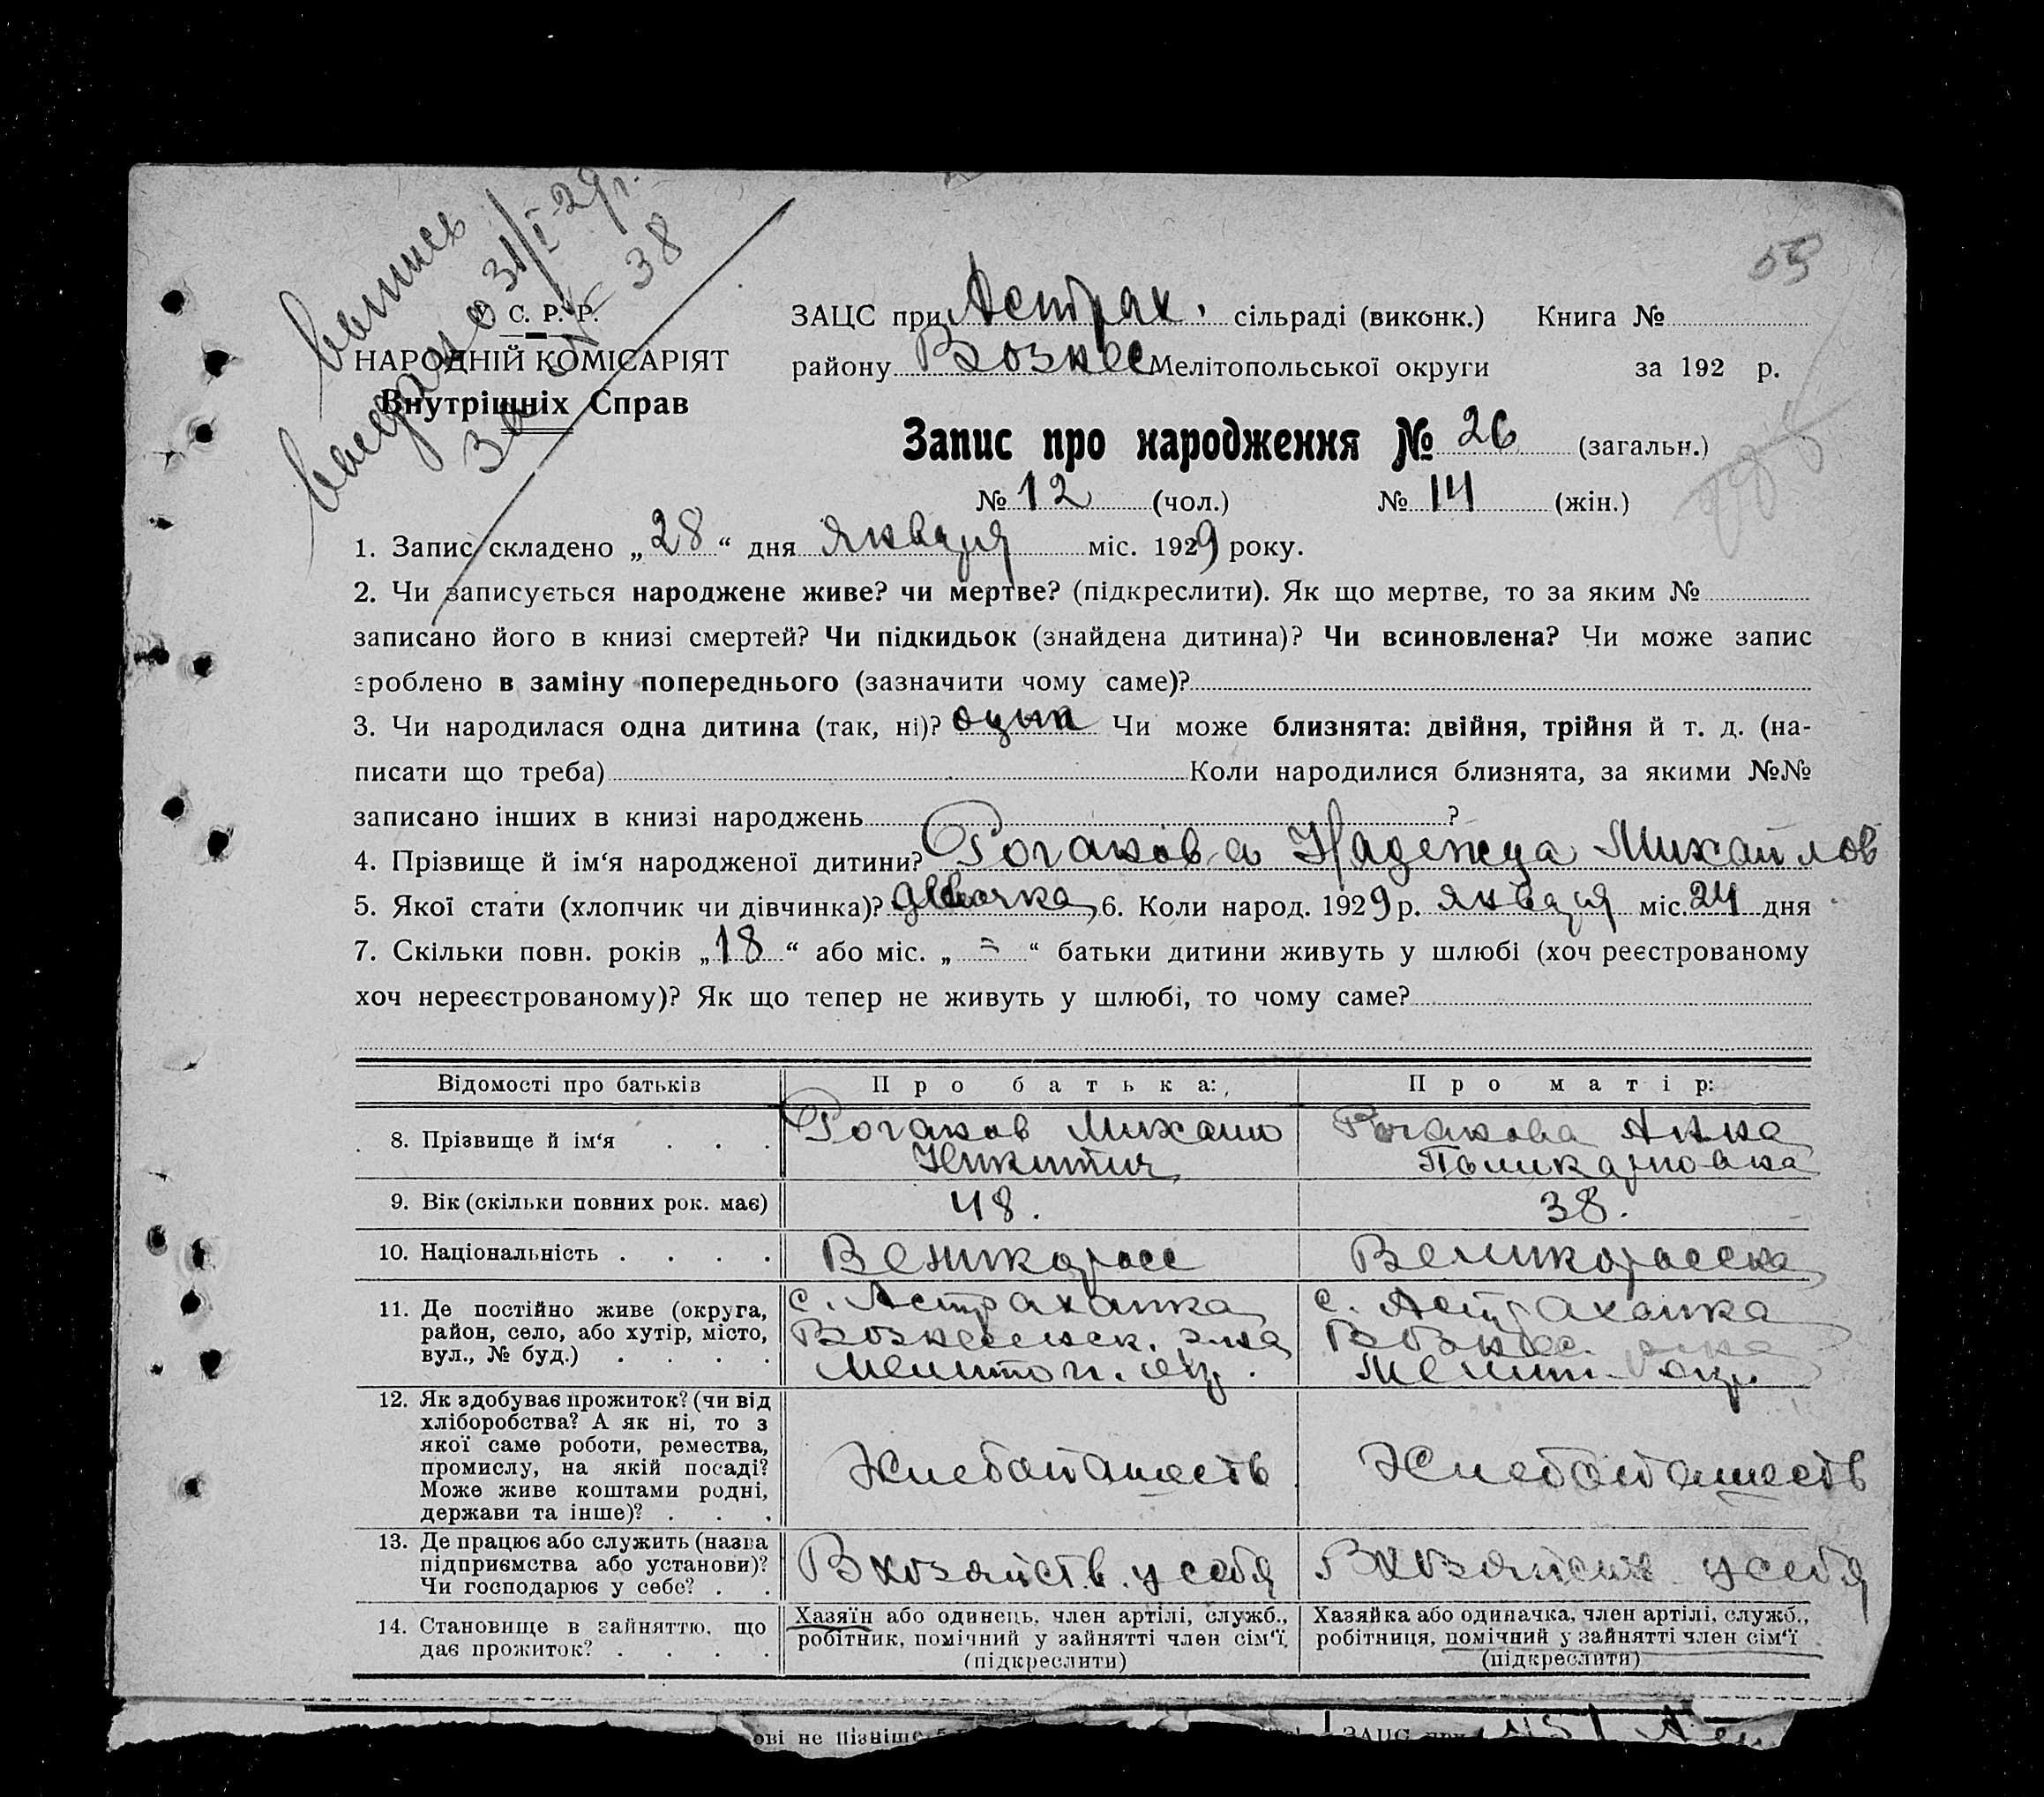 выпись
выдано 31/I-29г.
за № 38
55
У. С. Р. Р.
НАРОДНІЙ КОМІСАРІЯТ
Внутрішніх Справ
ЗАЦС при Астрах. сільраді (виконк.) Книга №
району Вознес Мелітопольської округи за 192 р.
Запис про народження № 26 (загальн.)
№ 12 (чол.) № 14 (жін.)
1. Запис складено „28“ дня января міс. 1929 року.
2. Чи записується народжене живе? чи мертве? (підкреслити). Як що мертве, то за яким №
записано його в книзі смертей? Чи підкидьок (знайдена дитина)? Чи всиновлена? Чи може запис
зроблено в заміну попереднього (зазначити чому саме)?
3. Чи народилася одна дитина (так, ні)? Чи може близнята: двійня, трійня й т. д. (на-
писати що треба) Коли народилися близнята, за якими №№
записано інших в книзі народжень ?
4. Прізвище й ім‘я народженої дитини? Рогакова Надежда Михайлов
5. Якої стати (хлопчик чи дівчинка)? девочка, 6. Коли народ. 1929 р. января міс. 24 дня
7. Скільки повн. років „18“ або міс. „=“ батьки дитини живуть у шлюбі (хоч реєстрованому
хоч нереєстрованому)? Як що тепер не живуть у шлюбі, то чому саме?
Відомості про батьків Про батька: Про матір:
8. Прізвище й ім‘я . . . Рогаков Михаил Никитич Рогакова Анна Поликарповна
9. Вік (скільки повних рок. має) 48. 38.
10. Національність . . . . Великоросс Великоросска
11. Де постійно живе (округа,
район, село, або хутір, місто,
вул., № буд.) . . . .
с. Астраханка
Вознесенск. р-на
Мелитоп. окр.
с. Астраханка
Вознес. р-на
Мелит. окр.
12. Як здобуває прожиток? (чи від
хліборобства? А як ні, то з
якої саме роботи, ремества,
промислу, на якій посаді?
Може живе коштами родні,
держави та інше)? . . .
Хлебопашеств Хлебопашеств
13. Де працює або служить (назва
підприємства або установи)?
Чи господарює у себе? . .
В хозяйств. у себя В хозяйств у себя
14. Становище в зайняттю, що
дає прожиток? . . . .
Хазяїн або одинець, член артілі, служб.,
робітник, помічний у зайнятті член сім‘ї
(підкреслити)
Хазяйка або одиначка, член артілі, служб.,
робітниця, помічний у зайнятті член сім‘ї
(підкреслити)
ові не пізніше
ЗАЦС при